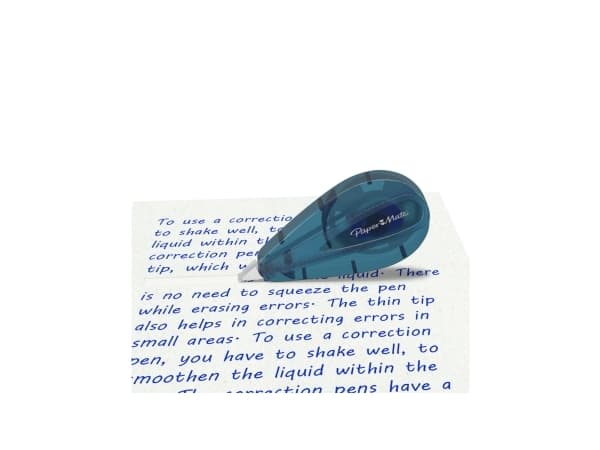 To use a correctio
to shake well, to
liquid within th
correction pe
tip, which
liquid. There
is no need to squeeze the pen
while erasing errors. The thin tip
also helps in correcting errors in
small areas. To use a correction
pen, you have to shake well, to
smoothen the liquid within the
The correction pens have a
Paper Mate